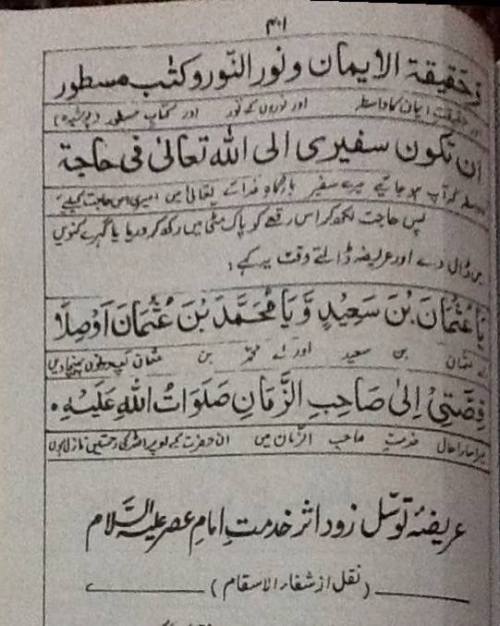 ۴۰۱
وحقیقة الایمان ونور النّور وکتٰب مسطور
اور حقیقت ایمان کا واسطہ اور نوروں کے نور اور کتاب مسطور
ان تکون سفیری الی الله تعالیٰ فی حاجة
کہ آپ ہو جائیے میرے سفیر بارگاہ خدائے تعالیٰ میں میری اس حاجت کیلئے
پس حاجت لکھ کر اس رقعے کو پاک مٹی میں رکھ کر دریا یا گہرے کنویں
میں ڈال دے اور عریضہ ڈالتے وقت یہ کہے :
یَا عُثْمَانَ بْنَ سَعِیْدٍ وَّ یَا مُحَمَّدَ بْنَ عُثْمَانَ اَوْصِلَا
اے عثمان بن سعید اور اے محمد بن عثمان آپ دونوں پہنچا دیں
قِصَّتِیْ اِلیٰ صَاحِبِ الزَّمَانِ صَلَوَاتُ اللهِ عَلَیْهِ۔
میرا سارا حال خدمت صاحب الزمان میں آنحضرت پر اللہ کی رحمتیں نازل ہوں
عریضۂ توسّل زود اثر خدمتِ امامِ عصر علیہ السَّلام
(نقل از شفاء الاسقام)